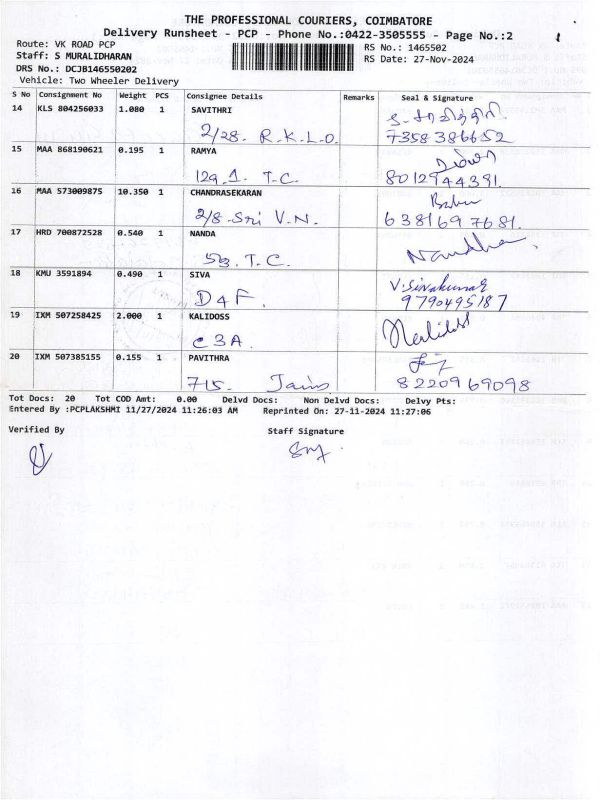 THE PROFESSIONAL COURIERS, COIMBATORE
Delivery Runsheet - PCP - Phone No.:0422-3505555 - Page No.:2
Route: VK ROAD PCP
Staff: S MURALIDHARAN
DRS No.: DCJB146550202
Vehicle: Two Wheeler Delivery
RS No.: 1465502
RS Date: 27-Nov-2024
S No Consignment No Weight PCS Consignee Details Remarks Seal & Signature
14 KLS 804256033 1.080 1 SAVITHRI
2/28. R.K.L.O. 7358386652
15 MAA 868190621 0.195 1 RAMYA
129.1. T.C. 8012944391.
16 MAA 573009875 10.350 1 CHANDRASEKARAN Babu
2/8. Sri V.N. 6381697681.
17 HRD 700872528 0.540 1 NANDA
53. T.C. Nandha
18 KMU 3591894 0.490 1 SIVA V.Sivakumar
D4F. 9790495187
19 IXM 507258425 2.000 1 KALIDOSS
C3A. Kalidoss
20 IXM 507385155 0.155 1 PAVITHRA
715. Jains 8220969098
Tot Docs: 20 Tot COD Amt: 0.00 Delvd Docs: Non Delvd Docs: Delvy Pts:
Entered By :PCPLAKSHMI 11/27/2024 11:26:03 AM Reprinted On: 27-11-2024 11:27:06
Verified By Staff Signature